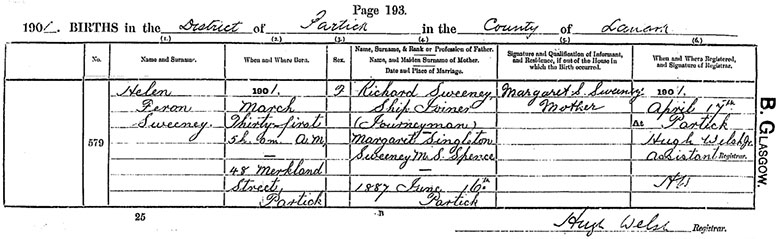 Page 193.
1901. BIRTHS in the District of Partick in the County of Lanark
(1.) (2.) (3.) (4.) (5.) (6.)
No. Name and Surname. When and Where Born. Sex. Name, Surname, & Rank or Profession of Father. Name, and Maiden Surname of Mother. Date and Place of Marriage. Signature and Qualification of Informant, and Residence, if out of the House in which the Birth occurred. When and Where Registered, and Signature of Registrar.
Helen 1901. F Richard Sweeney, Margaret S. Sweeney 1901.
Feron March Ship Joiner Mother April 17th
Sweeney. Thirty-first (Journeyman) At Partick
579 5h. 0m. A.M. Margaret Singleton Hugh Welsh Jr.
— Sweeney M.S. Spence Assistant Registrar.
48 Merkland —
Street, 1887 June 16th H W
Partick Partick
25 B
Hugh Welsh Registrar.
B. GLASGOW.